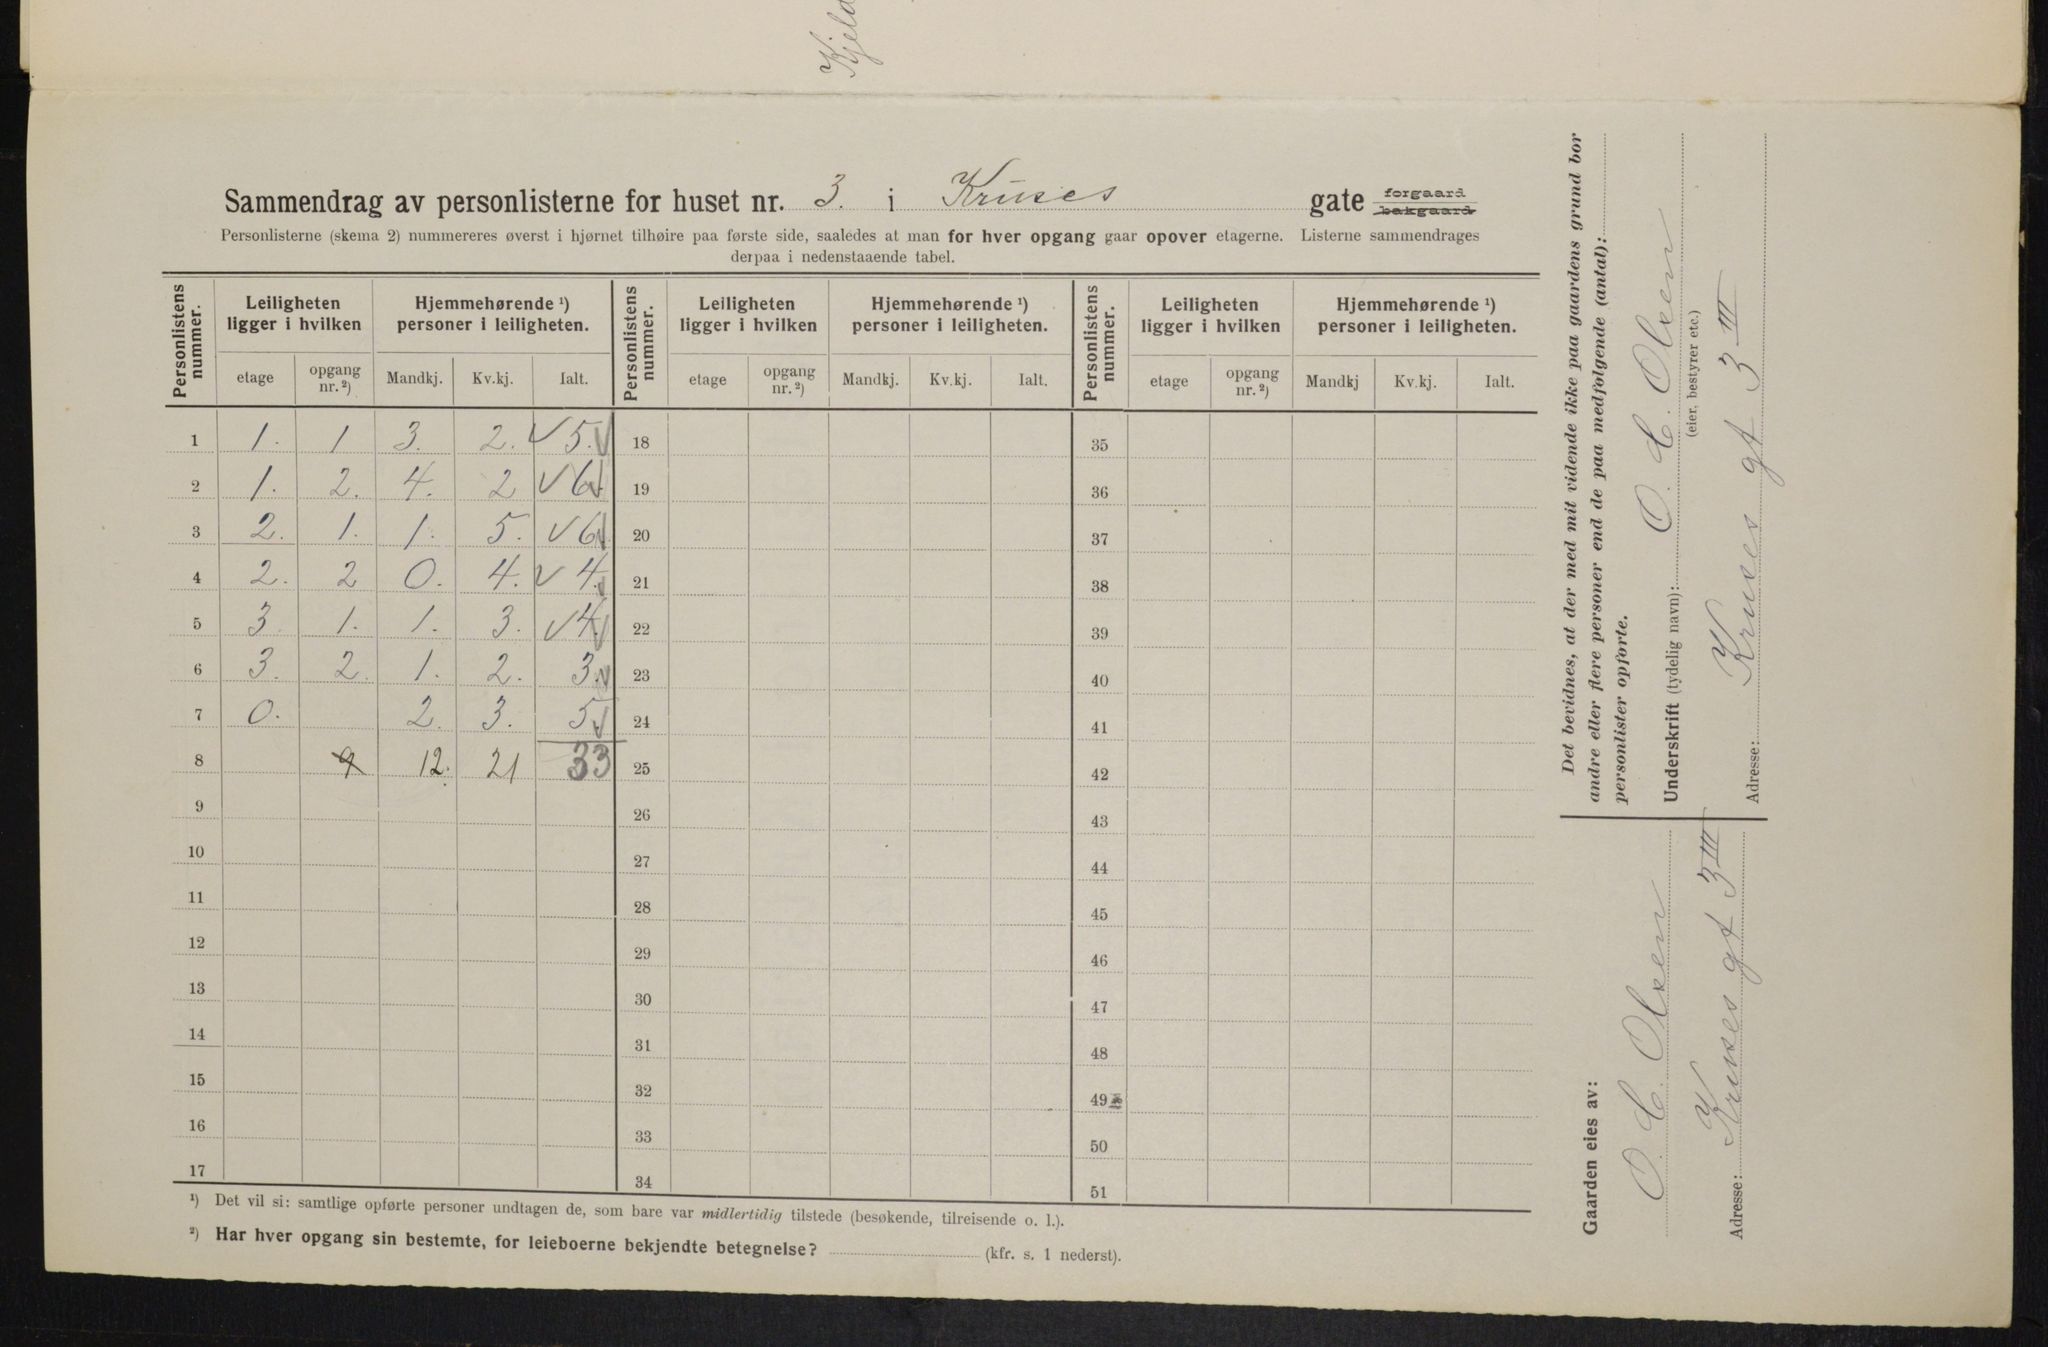 Kjeld
Sammendrag av personlisterne for huset nr. 3. i Kruses gate forgaard bakgaard
Personlisterne (skema 2) nummereres øverst i hjørnet tilhøire paa første side, saaledes at man for hver opgang gaar opover etagerne. Listerne sammendrages
derpaa i nedenstaaende tabel.
Personlistens nummer. Leiligheten ligger i hvilken Hjemmehørende ¹) personer i leiligheten. Personlistens nummer. Leiligheten ligger i hvilken Hjemmehørende ¹) personer i leiligheten. Personlistens nummer. Leiligheten ligger i hvilken Hjemmehørende ¹) personer i leiligheten.
etage opgang nr. ²) Mandkj. Kv.kj. Ialt. etage opgang nr. ²) Mandkj. Kv.kj. Ialt. etage opgang nr. ²) Mandkj Kv.kj. Ialt.
1 1. 1 3. 2. √ 5. √ 18 35
2 1. 2. 4. 2 √ 6. √ 19 36
3 2. 1. 1. 5. √ 6 √ 20 37
4 2. 2 0. 4. √ 4. √ 21 38
5 3. 1. 1. 3. √ 4. √ 22 39
6 3. 2. 1. 2. 3. √ 23 40
7 0. 2. 3. 5 √ 24 41
8 9 12. 21 33 25 42
9 26 43
10 27 44
11 28 45
12 29 46
13 30 47
14 31 48
15 32 49
16 33 50
17 34 51
¹) Det vil si: samtlige opførte personer undtagen de, som bare var midlertidig tilstede (besøkende, tilreisende o. l.).
²) Har hver opgang sin bestemte, for leieboerne bekjendte betegnelse? (kfr. s. 1 nederst).
Det bevidnes, at der med mit vidende ikke paa gaardens grund bor
andre eller flere personer end de paa medfølgende (antal):
personlister opførte.
Underskrift (tydelig navn): O. C. Olsen
(eier, bestyrer etc.)
Adresse: Kruses gt 3 III
Gaarden eies av:
O. C. Olsen
Adresse: Kruses gt 3 III